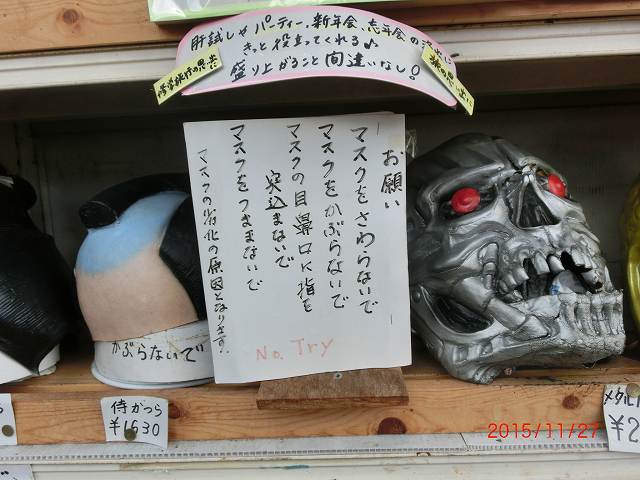 肝試しやパーティー、新年会、忘年会の
きっと役立ってくれる♪
盛り上がること間違いなし!
修学旅行の思い出に
旅の思い出に
お願い
マスクをさわらないで
マスクをかぶらないで
マスクの目鼻口に指を
突込まないで
マスクをつままないで
マスクの劣化の原因となります。
No. Try
かぶらないで
侍かつら
¥1630
メタル
¥2
2015/11/27